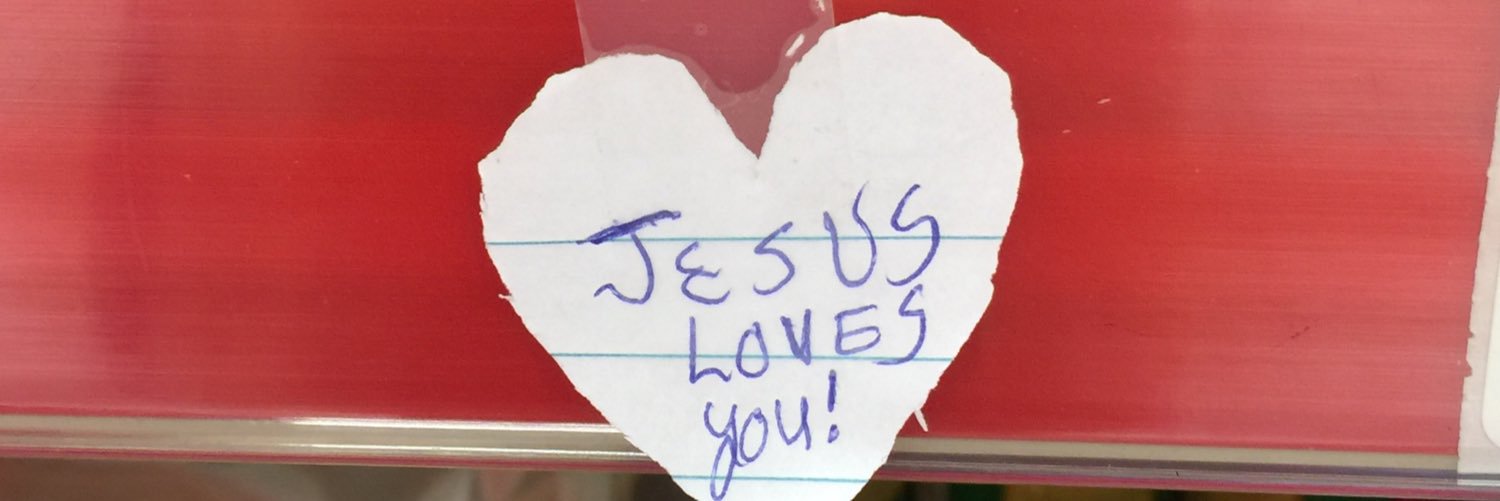 JESUS
LOVES
you!